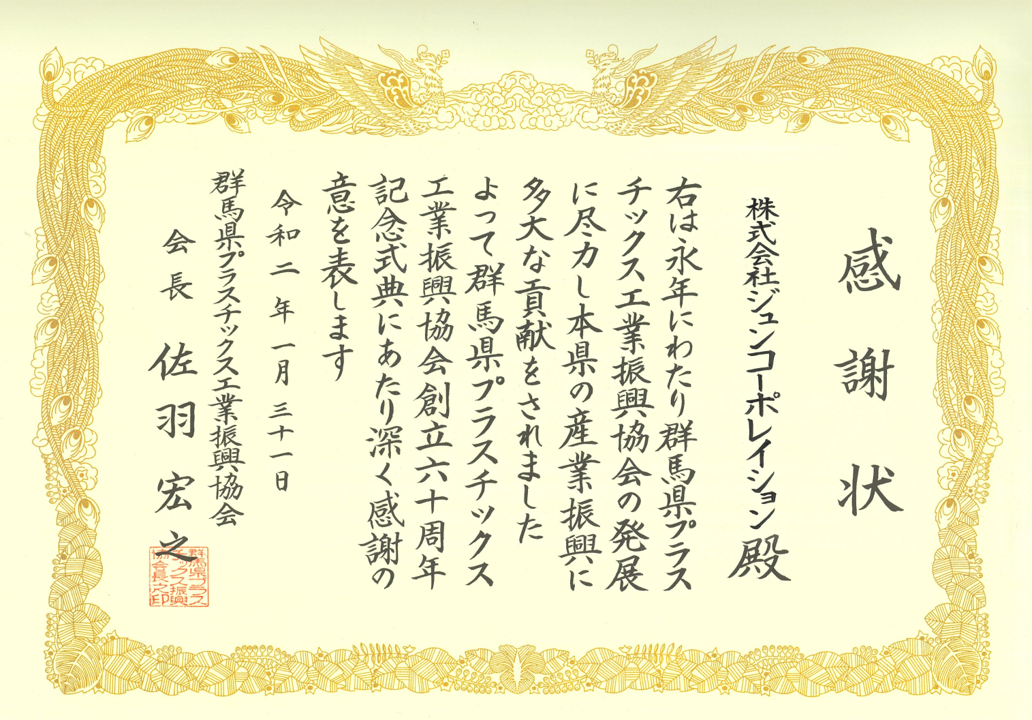 感謝状
株式会社ジュンコーポレイション 殿
右は永年にわたり群馬県プラス
チックス工業振興協会の発展
に尽力し本県の産業振興に
多大な貢献をされました
よって群馬県プラスチックス
工業振興協会創立六十周年
記念式典にあたり深く感謝の
意を表します
令和二年一月三十一日
群馬県プラスチックス工業振興協会
会長 佐羽宏之
群馬県プラス
チックス振興
協会長之印